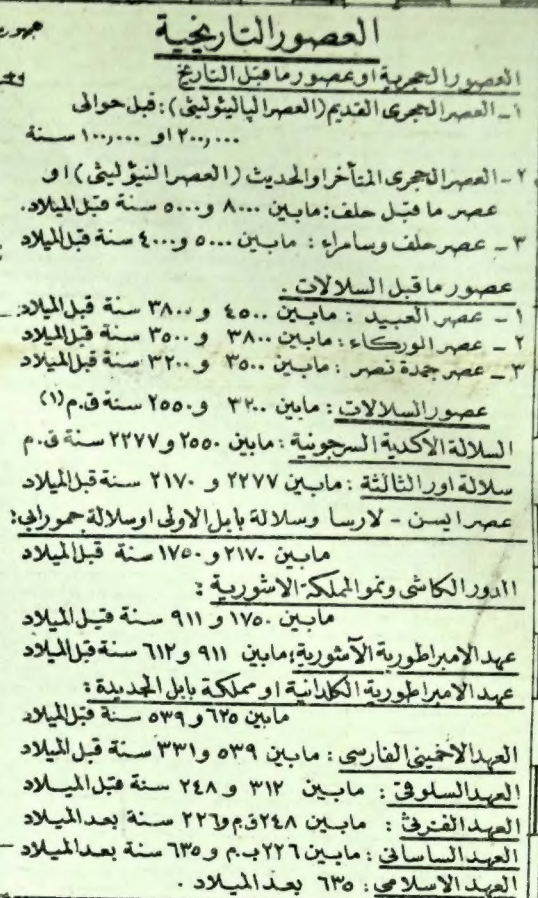 العصور التاريخية
العصور الحجرية او عصور ما قبل التاريخ
١ـ العصر الحجرى القديم (العصر الپاليئوليثى): قبل حوالى
٢٠٠,٠٠٠ او ١٠٠,٠٠٠ سنة
٢ـ العصر الحجرى المتأخر او الحديث (العصر النيؤليثى) او
عصر ما قبل حلف: مابين ٨٠٠٠ و ٥٠٠٠ سنة قبل الميلاد.
٣ـ عصر حلف وسامراء: مابين ٥٠٠٠ و ٤٠٠٠ سنة قبل الميلاد
عصور ما قبل السلالات.
١ـ عصر العبيد: مابين ٤٥٠٠ و ٣٨٠٠ سنة قبل الميلاد
٢ـ عصر الوركاء: مابين ٣٨٠٠ و ٣٥٠٠ سنة قبل الميلاد
٣ـ عصر جمدة نصر: مابين ٣٥٠٠ و ٣٢٠٠ سنة قبل الميلاد
عصور السلالات: مابين ٣٢٠٠ و ٢٥٥٠ سنة ق.م (١)
السلالة الاكدية السرجونية: مابين ٢٥٥٠ و ٢٢٧٧ سنة ق.م
سلالة اور الثالثة: مابين ٢٢٧٧ و ٢١٧٠ سنة قبل الميلاد
عصر ايسن - لارسا وسلالة بابل الاولى او سلالة حمورابي:
مابين ٢١٧٠ و ١٧٥٠ سنة قبل الميلاد
الدور الكاشى ونمو المملكة الاشورية:
مابين ١٧٥٠ و ٩١١ سنة قبل الميلاد
عهد الامبراطورية الآشورية: مابين ٩١١ و ٦١٢ سنة قبل الميلاد
عهد الامبراطورية الكلدانية او مملكة بابل الجديدة:
مابين ٦٢٥ و ٥٣٩ سنة قبل الميلاد
العهد الاخمينى الفارسى: مابين ٥٣٩ و ٣٣١ سنة قبل الميلاد
العهد السلوقى: مابين ٣١٢ و ٢٤٨ سنة قبل الميلاد
العهد الفرثى: مابين ٢٤٨ ق.م و ٢٢٦ سنة بعد الميلاد
العهد الساسانى: مابين ٢٢٦ ب.م و ٦٣٥ سنة بعد الميلاد
العهد الاسلامى: ٦٣٥ بعد الميلاد.